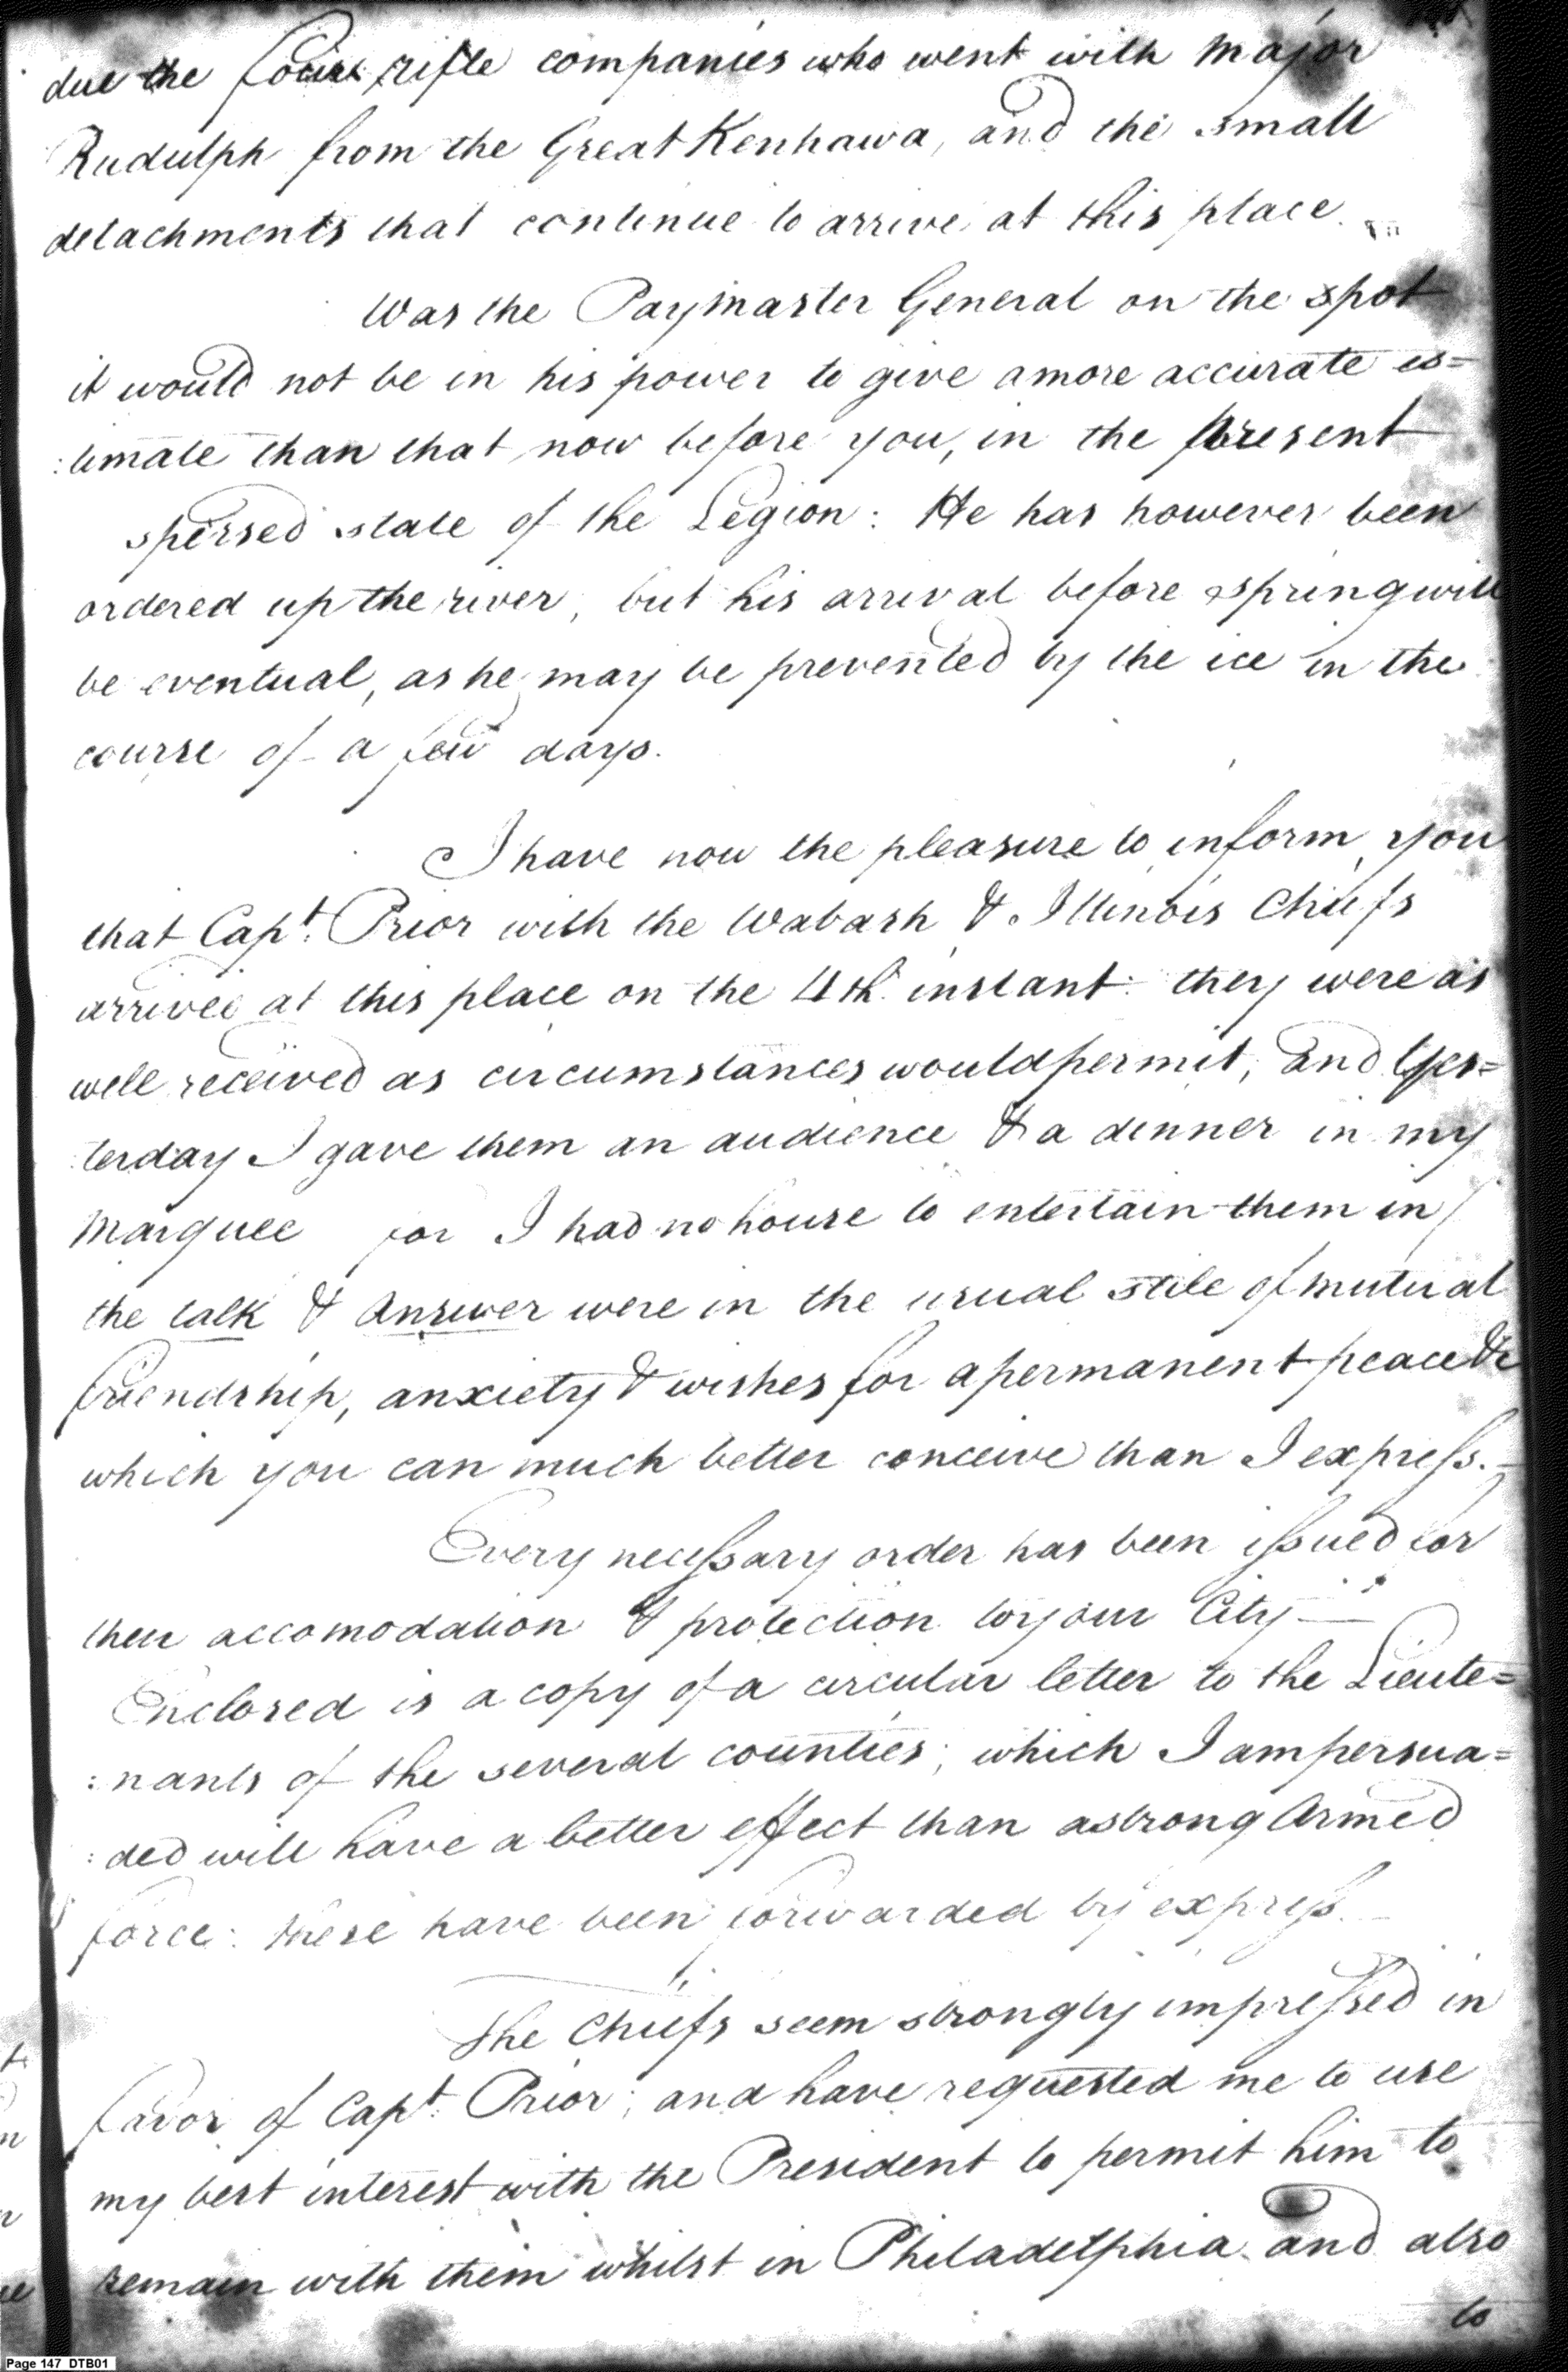 due the four rifle companies who went with Major
Rudulph from the Great Kenhawa, and the small
detachments that continue to arrive at this place.
Was the Paymaster General on the spot
it would not be in his power to give a more accurate es=
:timate than that now before you, in the present
spersed state of the Legion: He has however been
ordered up the river, but his arrival before spring will
be eventual, as he may be prevented by the ice in the
course of a few days.
I have now the pleasure to inform you
that Capt. Prior with the Wabash & Illinois Chiefs
arrived at this place on the 4th. instant: they were as
well received as circumstances would permit, and yes=
terday I gave them an audience & a dinner in my
Marquee for I had no house to entertain them in/
the talk & answer were in the usual stile of mutual
friendship, anxiety & wishes for a permanent peace &c
which you can much better conceive than I express.—
Every necessary order has been issued for
their accomodation & protection to your City—
Enclosed is a copy of a circular letter to the Lieute=
:nants of the several counties; which I am persua=
:ded will have a better effect than a strong armed
force: these have been forwarded by express.—
The Chiefs seem strongly impressed in
favor of Capt. Prior; and have requested me to use
my best interest with the President to permit him to
remain with them whilst in Philadelphia and also
to
Page 147 DTB01